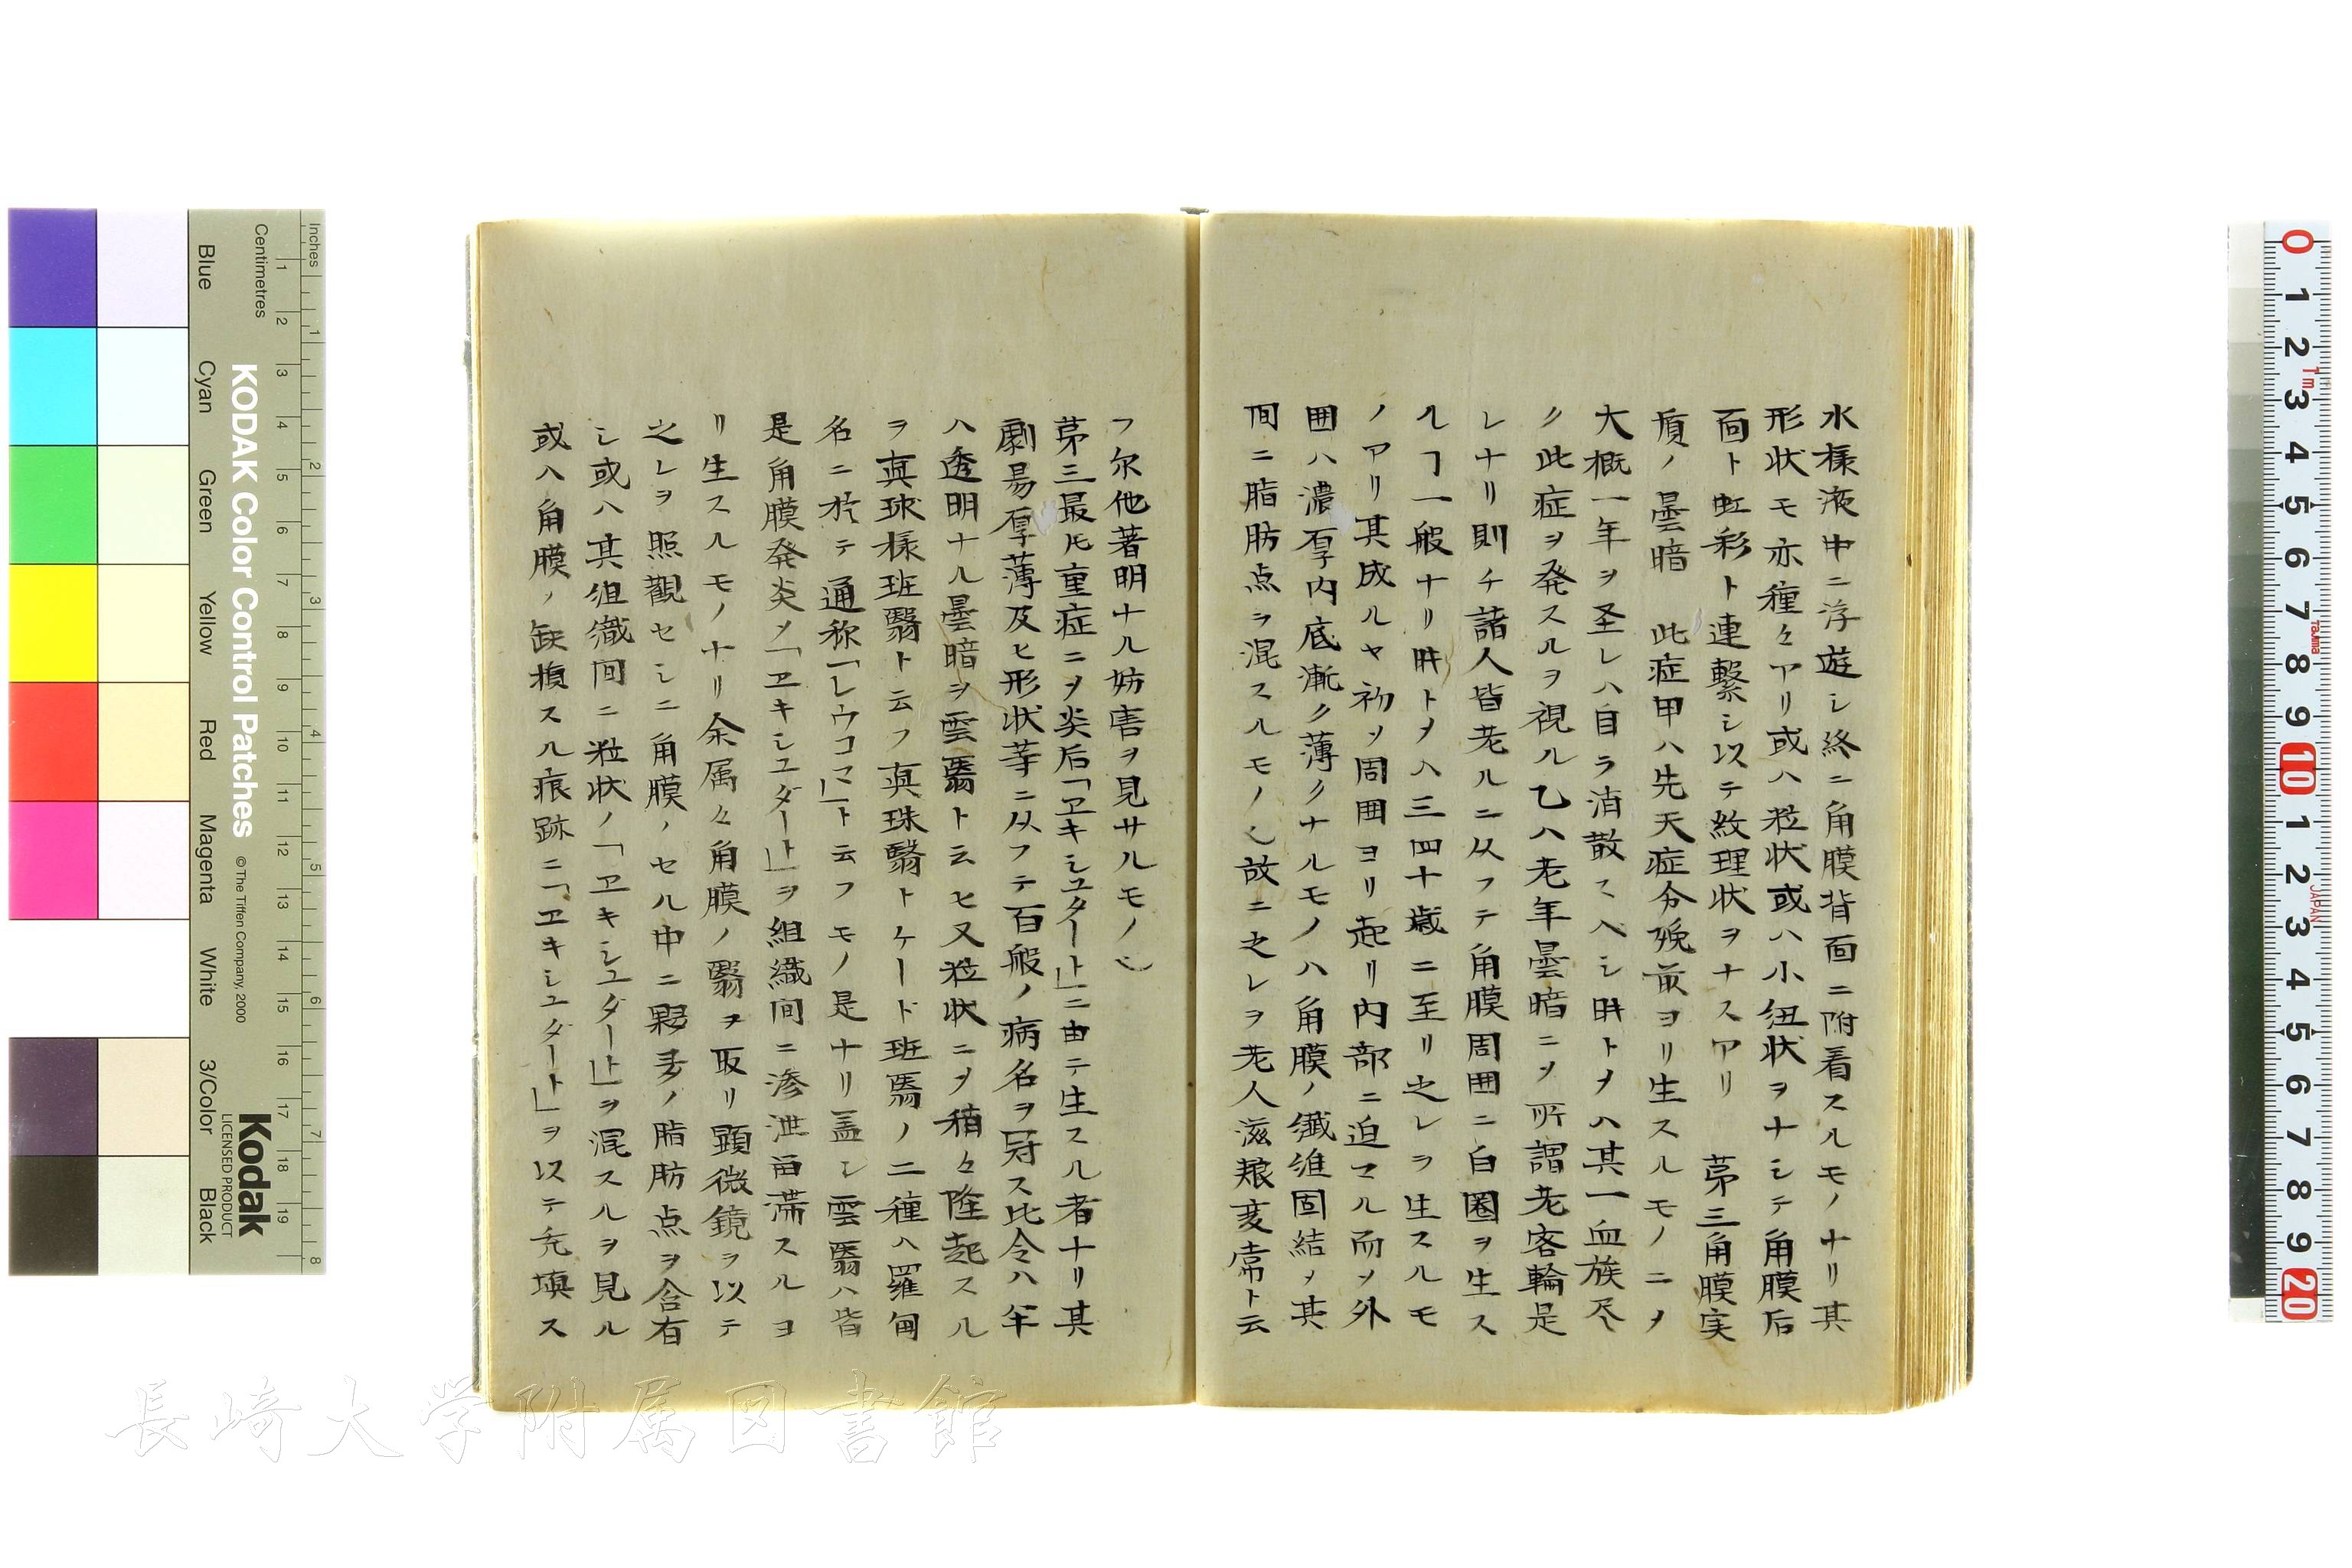 水様液中ニ浮遊シ終ニ角膜背面ニ附着スルモノナリ其
形状モ亦種々アリ或ハ粒状或ハ小紐状ヲナシテ角膜后
面ト虹彩ト連繋シ以テ紋理状ヲナスアリ 苐三角膜実
質ノ曇暗 此症甲ハ先天症分娩前ヨリ生スルモノニ〆
大概一年ヲ圣レハ自ラ消散スヘシ時トメハ其一血族尽
ク此症ヲ発スルヲ視ル乙ハ老年曇暗ニ〆所謂老客輪是
レナリ則チ諸人皆老ルニ从フテ角膜周囲ニ白圏ヲ生ス
ルヿ一般ナリ時トメハ三四十歳ニ至リ之レヲ生スルモ
ノアリ其成ルヤ初メ周囲ヨリ起リ内部ニ迫マル而〆外
囲ハ濃厚内底漸ク薄クナルモノハ角膜ノ纖維固結〆其
間ニ脂肪点ヲ混スルモノ乀故ニ之レヲ老人滋粮変常ト云
フ尓他著明ナル妨害ヲ見サルモノ乀
苐三最モ重症ニ〆炎后「ヱキシユダート」ニ由テ生スル者ナリ其
劇易厚薄及ヒ形状䓁ニ从フテ百般ノ病名ヲ冠ス比令ハ半
ハ透明ナル曇暗ヲ雲翳ト云ヒ又粒状ニ〆稍々隆起スル
ヲ真球様班翳ト云フ真珠翳トケード班翳ノ二種ハ羅甸
名ニ於テ通称「レウコマ」ト云フモノ是ナリ盖シ雲翳ハ皆
是角膜発炎〆「ヱキシユダート」ヲ組織間ニ滲泄畄滞スルヨ
リ生スルモノナリ余属々角膜ノ翳ヲ取リ顕微鏡ヲ以テ
之レヲ照觀セシニ角膜ノセル中ニ夥多ノ脂肪点ヲ含有
シ或ハ其組織間ニ粒状ノ「ヱキシユダート」ヲ混スルヲ見ル
或ハ角膜ノ缺損スル痕跡ニ「ヱキシユダート」ヲ以テ充塡ス
長崎大学附属図書館
KODAK Color Control Patches
© The Tiffen Company, 2000
Kodak
LICENSED PRODUCT
Inches
Centimetres
Blue
Cyan
Green
Yellow
Red
Magenta
White
3/Color
Black
1 2 3 4 5 6 7 8 9 10 11 12 13 14 15 16 17 18 19
1 2 3 4 5 6 7 8
0 1 2 3 4 5 6 7 8 9 10 1 2 3 4 5 6 7 8 9 20
1m
Tajima
JAPAN